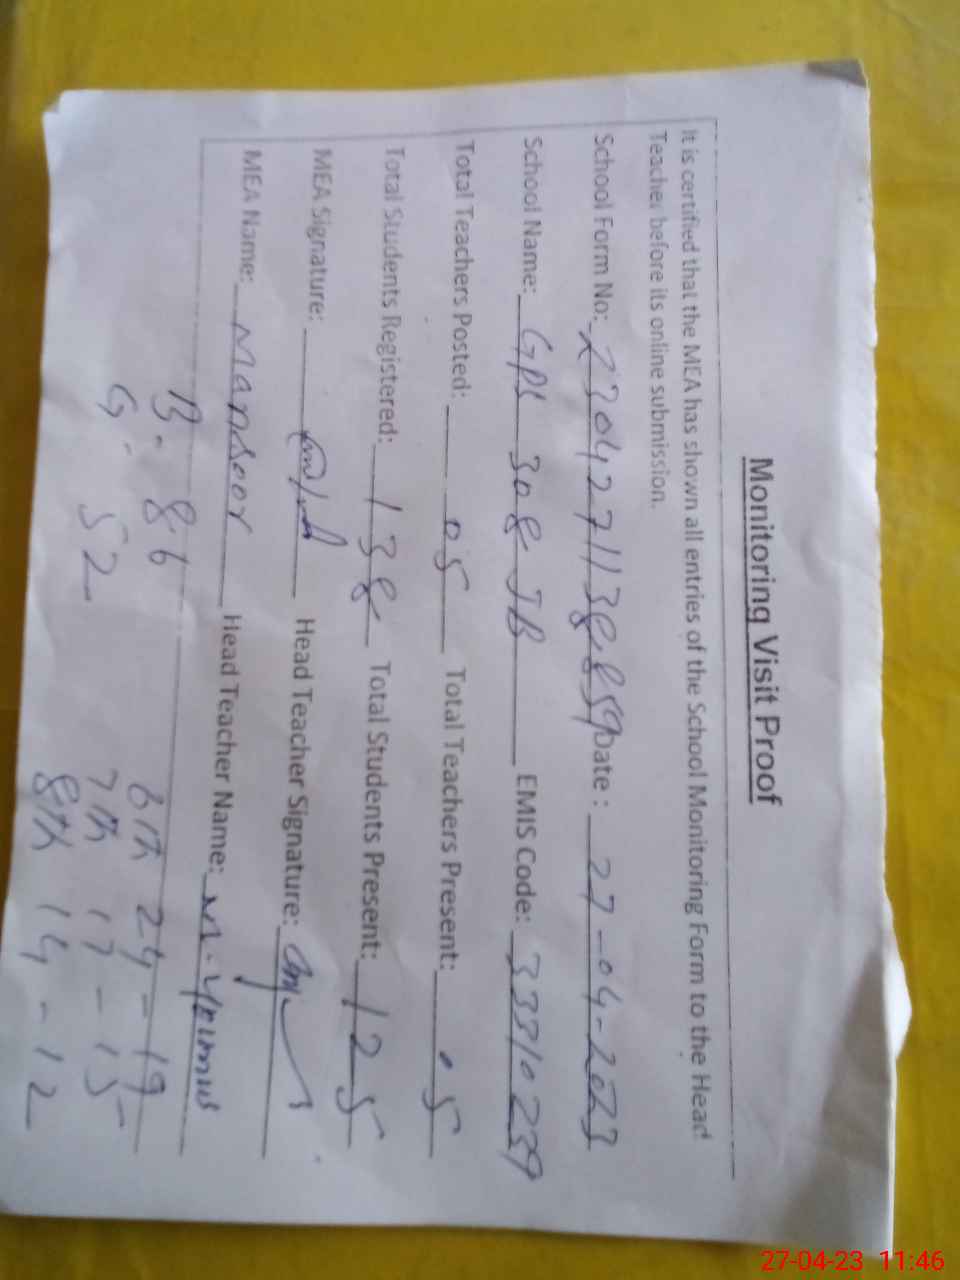 Monitoring Visit Proof
It is certified that the MEA has shown all entries of the School Monitoring Form to the Head
Teacher before its online submission.
School Form No: 23042711388859 Date : 27-04-2023
School Name: GPS 308 JB EMIS Code: 33310239
Total Teachers Posted: 05 Total Teachers Present: 05
Total Students Registered: 138 Total Students Present: 125
MEA Signature: Head Teacher Signature:
MEA Name: Mansoor Head Teacher Name: M. Younus
B. 86
G. 52
6th 24-19
7th 17-15
8th 14-12
27-04-23 11:46